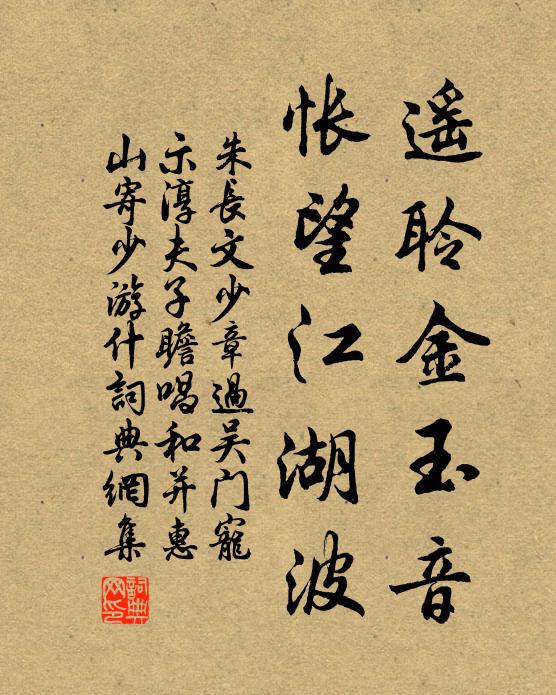 遥聆金玉音
怅望江湖波
朱長文少章過吴门寵
示淳夫子瞻唱和并惠
山寄少游什詞典網集
詞典网印